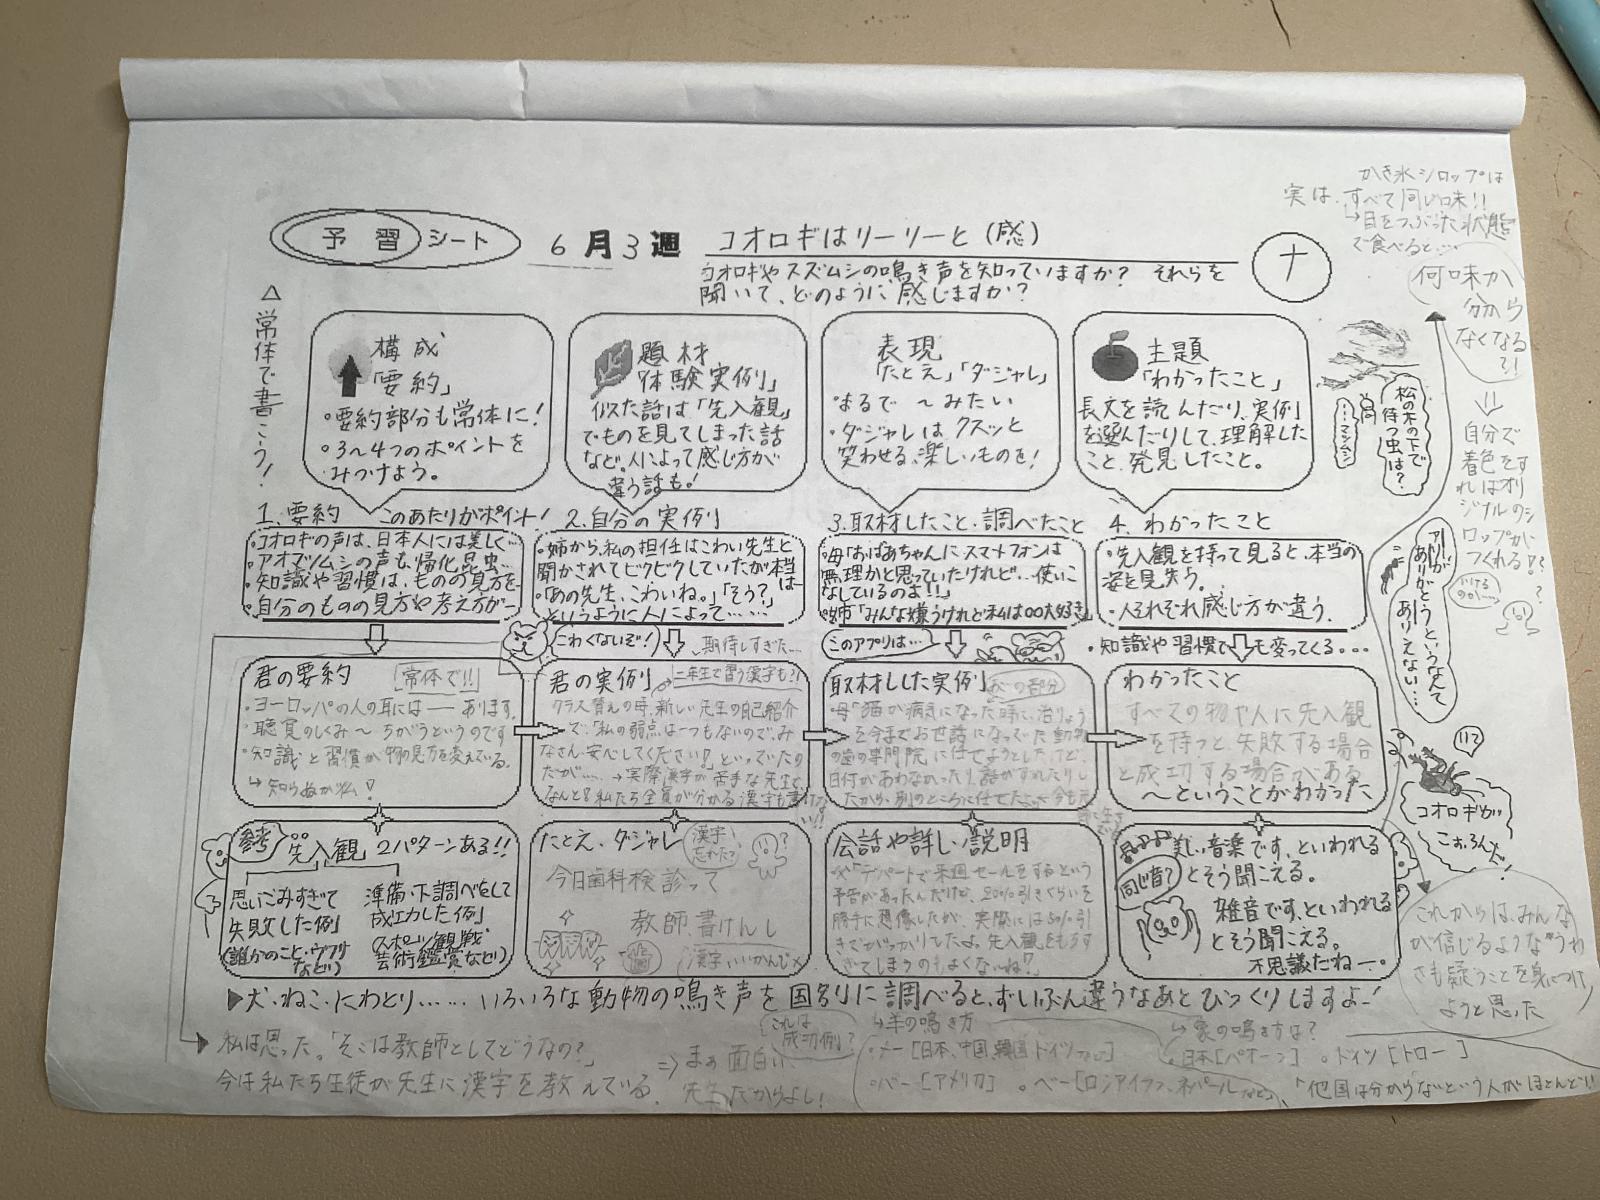 予習シート
6月3週
コオロギはリーリーと（感）
ナ
コオロギやスズムシの鳴き声を知っていますか？それらを
聞いて、どのように感じますか？
△常体で書こう！
かき氷シロップは
実は、すべて同じ味！！
↳目をつぶった状態
で食べると…
何味か
分から
なくなる
？！
自分で
着色をす
ればオリ
ジナルのシ
ロップが
つくれる！？
構成
「要約」
・要約部分も常体に！
・3～4つのポイントを
みつけよう。
題材
「体験実例」
似た話は「先入観」
でものを見てしまった話
など。人によって感じ方が
違う話も！
表現
「たとえ」「ダジャレ」
・まるで～みたい
・ダジャレはクスッと
笑わせる、楽しいものを！
主題
「わかったこと」
長文を読んだり、実例
を選んだりして、理解した
こと、発見したこと。
松の木の下で
待つ虫は？
…マツムシ
アリが
ありがとうというなんて
ありえない…
1.要約 このあたりがポイント！
・コオロギの声は、日本人には美しく…
・アオマツムシの声も、帰化昆虫…
・知識や習慣は、ものの見方を…
・自分のものの見方や考え方が…
2.自分の実例
・姉から、私の担任はこわい先生と
聞かされてビクビクしていたが本当は
・「あの先生、こわいね。」「そう？」
というように人によって……
3.取材したこと・調べたこと
・母「おばあちゃんにスマートフォンは
無理かと思っていたけれど…使いこ
なしているのよ！！」
・姉「みんな嫌うけれど私は○○大好き」
4.わかったこと
・先入観を持って見ると、本当の
姿を見失う。
・人それぞれ感じ方が違う。
・知識や習慣でも変ってくる…
こわくないぞ！
期待しすぎた…
このアプリは…
君の要約
常体で！！
・ヨーロッパの人の耳には――あります。
・聴覚のしくみ～ちがうというのです
・知識と習慣が物の見方を変えている。
↳知らぬが仏！
君の実例
二年生で習う漢字も？！
クラス替えの時、新しい先生の自己紹介
で、「私の弱点は一つもないので、み
なさん安心してください？」といっていたの
だが…。→実際漢字が苦手な先生で
なんと！私たち全員が分かる漢字も書けない！！
取材した実例
・母「猫が病気になった時に、治りょう
を今までお世話になっていた動物
の歯の専門院に任せようとしたけど、
日付があわなかったり、話がずれたりし
たから、別のところに任せた
わかったこと
すべての物や人に先入観
を持つと、失敗する場合
と成功する場合がある
～ということがわかった
コオロギが
こおろんだ！
参考
先入観 2パターンある！！
思いこみすぎて
失敗した例
(誰かのこと・ウワサ
など)
準備・下調べをして
成功した例
(スポーツ観戦
芸術鑑賞など)
たとえ、ダジャレ
漢字
忘れた？
今日歯科検診って
教師、書けんし
漢字いいかんじ×
会話や詳しい説明
・父「デパートで来週セールをするという
予告があったんだけど、20%引きぐらいを
勝手に想像したが、実際には5%引
きでがっかりしたよ。先入観をもちす
ぎてしまうのもよくないね？」
美しい音楽です、といわれる
とそう聞こえる。
同じ音？
雑音です、といわれる
とそう聞こえる。
不思議だねー。
これからは、みんな
が信じるような“うわ
さも疑うことを身につけ
ようと思った
▶犬・ねこ・にわとり……いろいろな動物の鳴き声を国別に調べると、ずいぶん違うなあとびっくりしますよ！
私は思った。「そこは教師としてどうなの？」
今は私たち生徒が先生に漢字を教えている。
⇒まあ面白い
先生だからよし！
これは
成功例？
↳羊の鳴き方
・メー［日本、中国、韓国、ドイツ
・バー［アメリカ］
・ベー［ロシア
↳象の鳴き方は？
・日本［パオーン］
・ドイツ［トロー］
「他国は分からないという人がほとんど！！